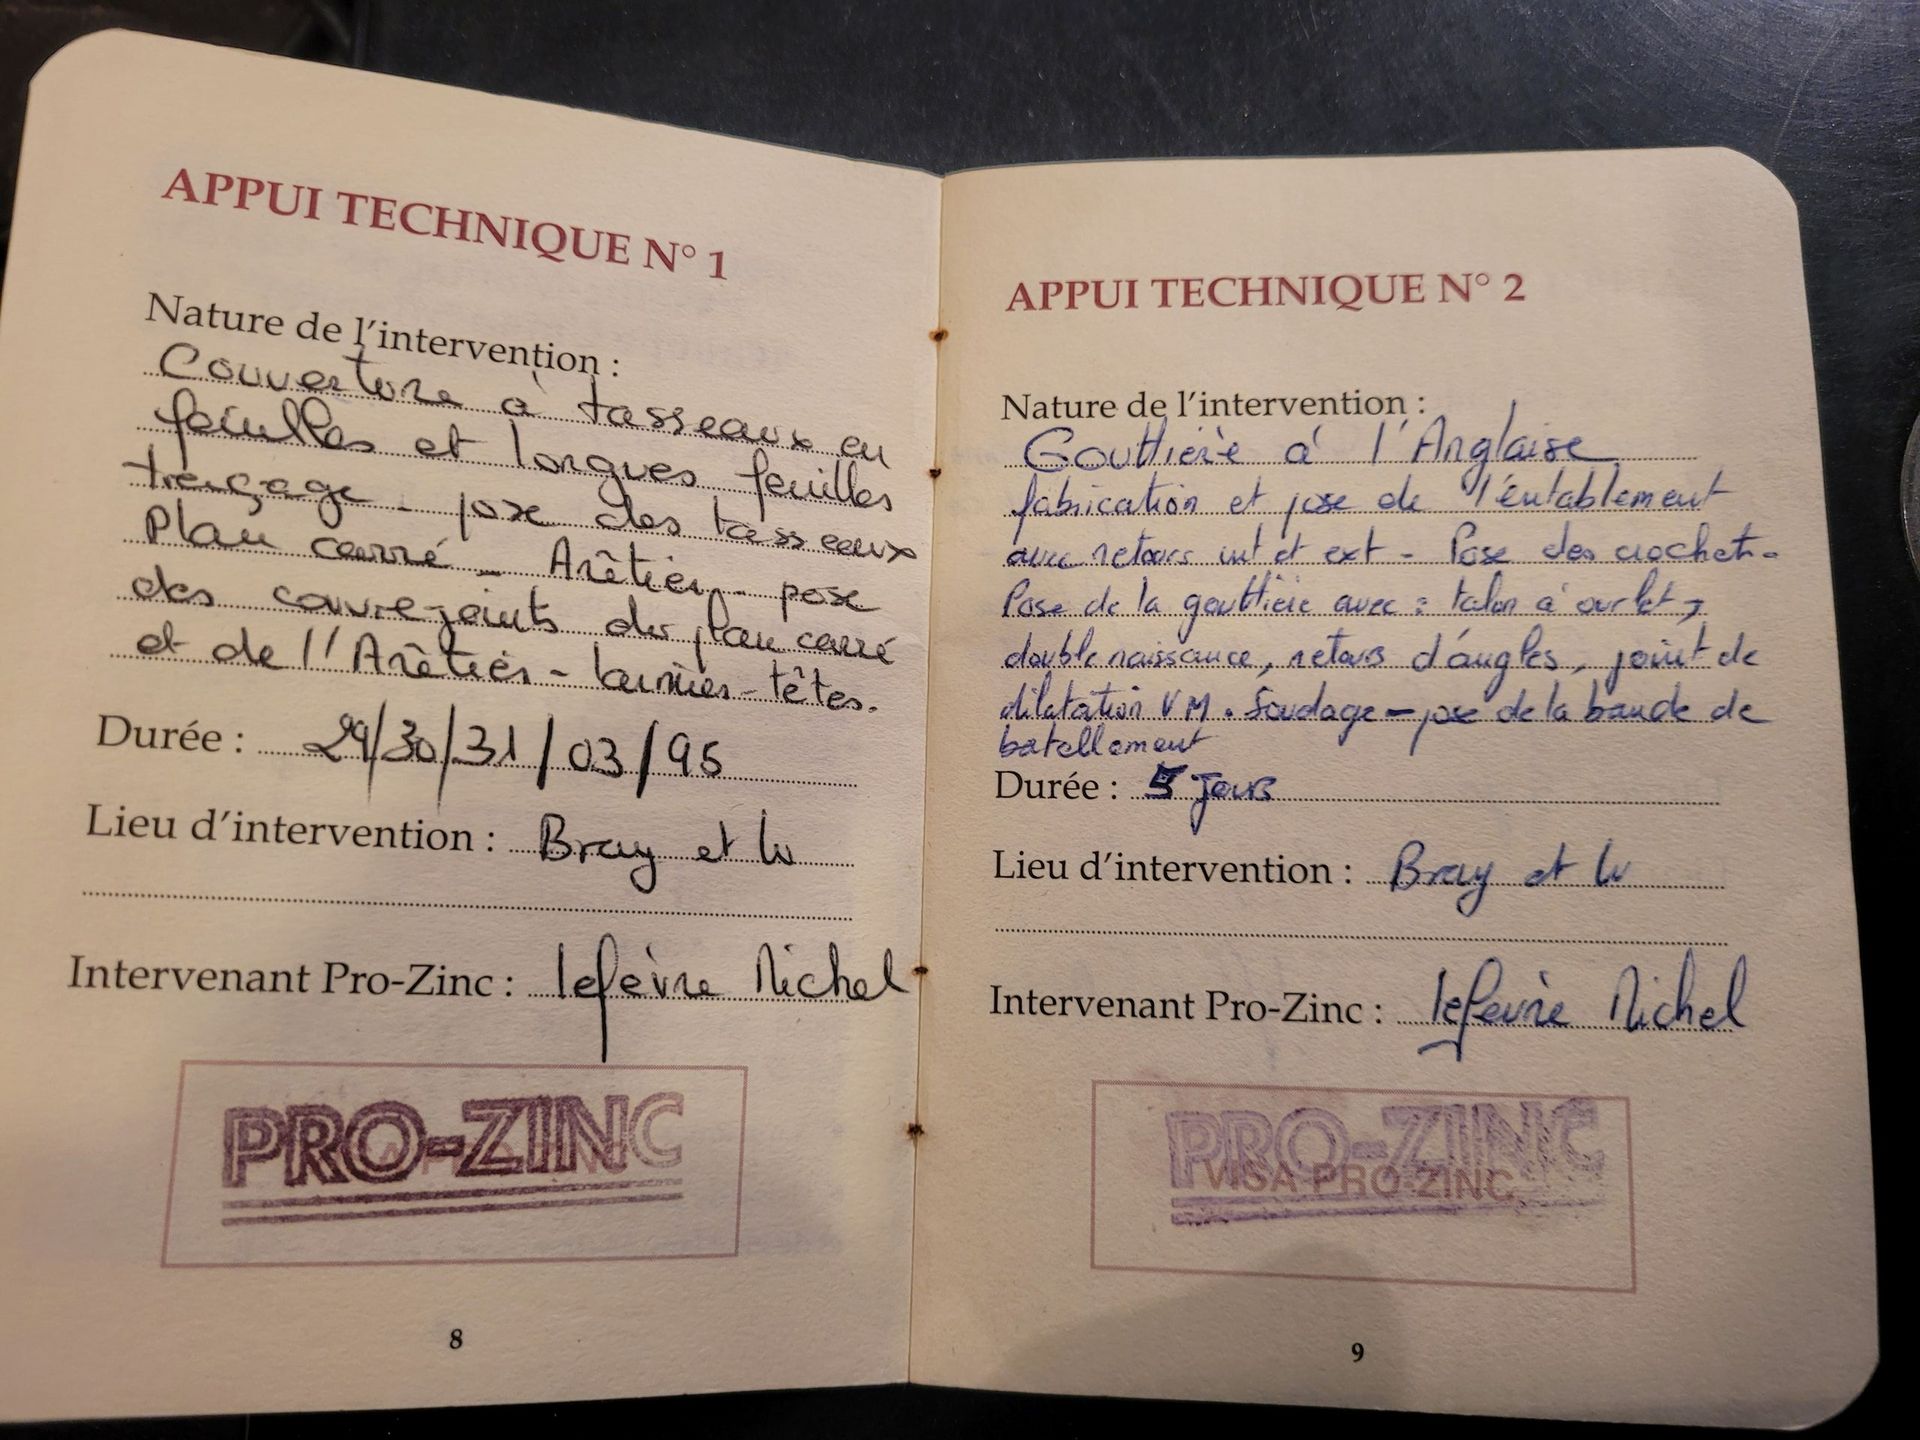 APPUI TECHNIQUE N° 1
Nature de l'intervention :
Couverture à tasseaux en
feuilles et longues feuilles
traçage - pose des tasseaux
Plan carré - Arêtier - pose
des couvre-joints du plan carré
et de l'Arêtier - larmiers - têtes.
Durée : 29/30/31/03/95
Lieu d'intervention : Bray et lu
Intervenant Pro-Zinc : lefèvre Michel
PRO-ZINC
8
APPUI TECHNIQUE N° 2
Nature de l'intervention :
Gouttière à l'Anglaise
fabrication et pose de l'entablement
avec retours int et ext - Pose des crochets -
Pose de la gouttière avec : talon à ourlet,
double naissance, retours d'angles, joint de
dilatation VM. Soudage - pose de la bande de
batellement
Durée : 5 jours
Lieu d'intervention : Bray et lu
Intervenant Pro-Zinc : lefevre Michel
PRO-ZINC
VISA PRO-ZINC
9